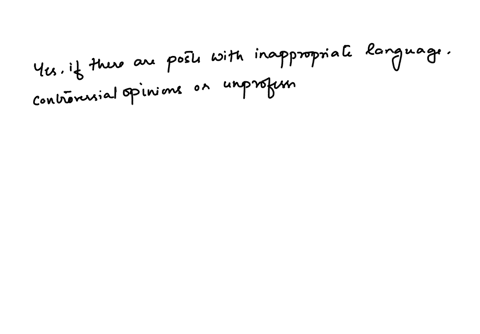 Yes. if there are posts with inappropriate language.
controversial opinions or unprofessn